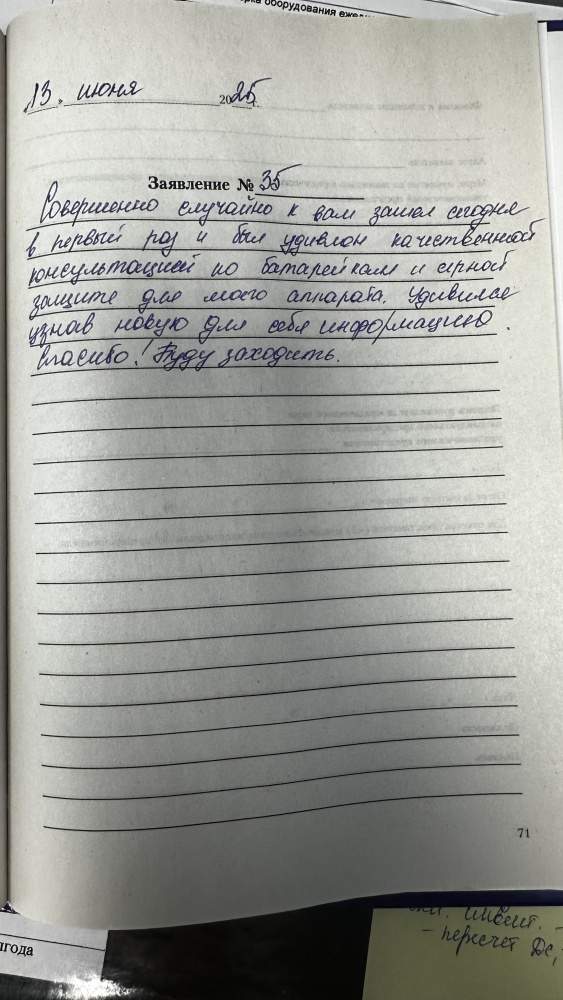 рка оборудования ежедн
„13 „ июня 2025г.
Заявление № 35
Совершенно случайно к вам зашел сегодня
в первый раз и был удивлен качественной
консультацией по батарейкам и серной
защите для моего аппарата. Удивился
узнав новую для себя информацию.
Спасибо! Буду заходить.
71
- пересчет Дс,
лгода